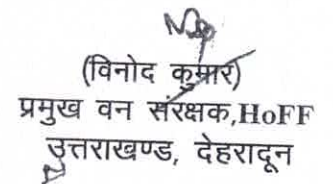 (विनोद कुमार)
प्रमुख वन संरक्षक,HoFF
उत्तराखण्ड, देहरादून